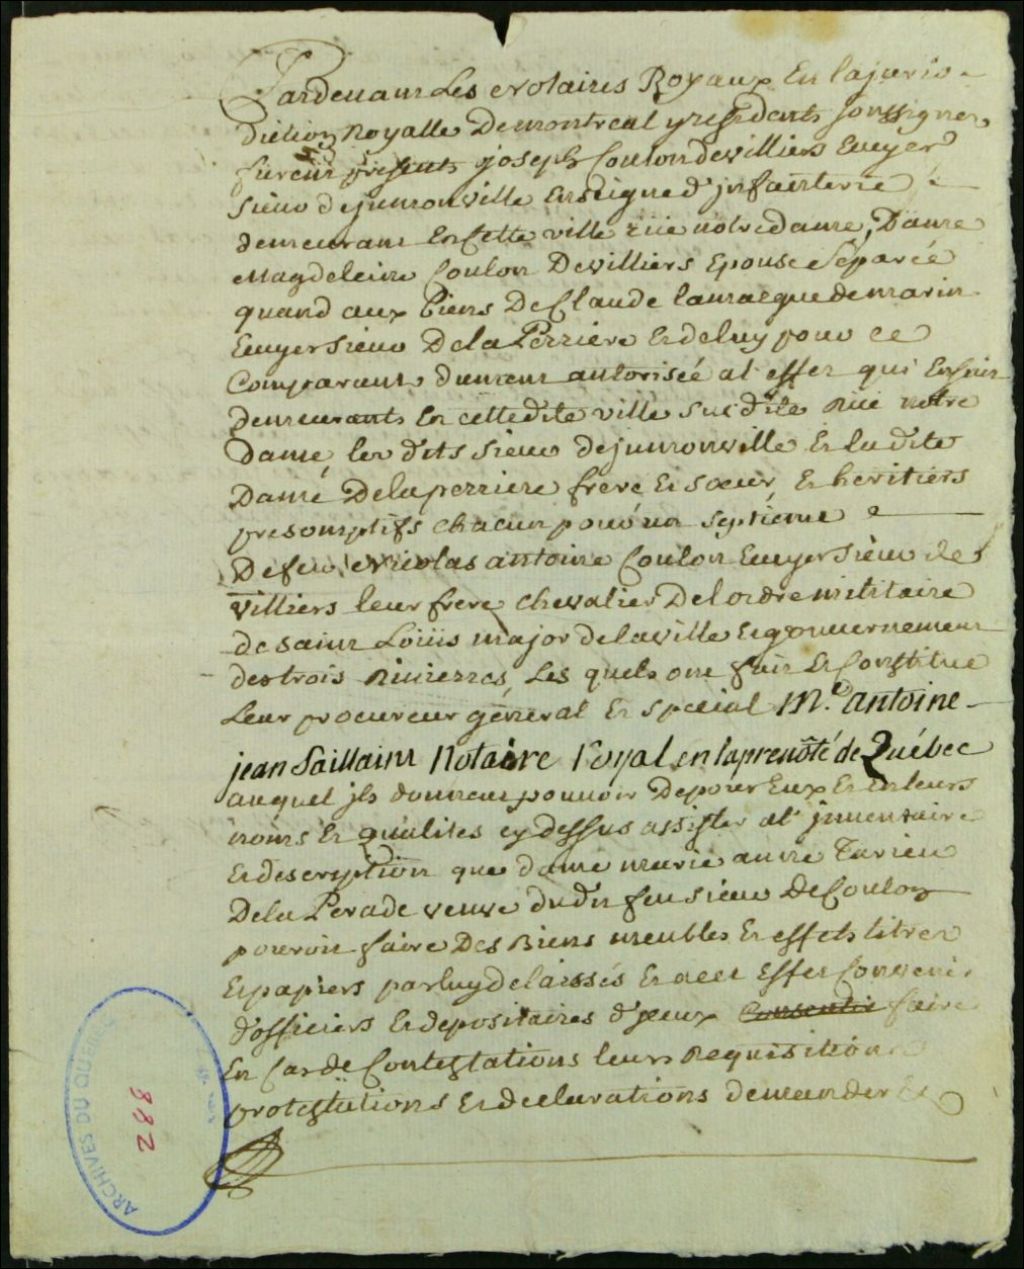 Pardevant Les Notaires Royaux En la juris-
diction Royalle de montreal y residents soussignez
furent presents joseph Coulon de villiers Ecuyer
Sieur de jumonville Enseigne d'jnfanterie
demeurant En Cette ville rüe notre dame, Dame
Magdeleine Coulon De villiers Epouse Séparée
quand aux Biens De Claude lamarque de marin
Ecuyer Sieur De la Perriere Et de luy pour ce
Comparant düement autorisée a l'effet qui Ensuit
demeurants En cette dite ville susdite Rüe notre
Dame, les dits sieur de jumonville Et la dite
Dame De la perriere frere Et sœur, Et heritiers
presomptifs chacun pour un septieme
De feu Nicolas antoine Coulon Ecuyer Sieur de
Villiers leur frere Chevalier De l'ordre militaire
de saint Loüis major de la ville Et gouvernement
des trois Rivierres, Les quels ont fait Et Constitué
Leur procureur general Et special Me. antoine
jean Saillant Notaire Royal en la prevôté de Québec
auquel jls donnent pouvoir De pour Eux Et En leurs
noms Et qualites cy dessus assister a l'jnventaire
Et description que dame marie anne Tarieu
De la Perade veuve du dit feu sieur De Coulon
pouroit faire Des Biens meubles Et effets titres
Et papiers par luy delaissés Et a cet Effet Convenir
d'officiers Et depositaires d'jceux Consentir faire
En Cas de Contestations leurs Requisitions
protestations Et declarations demander Et
ARCHIVES DU QUÉBEC
882